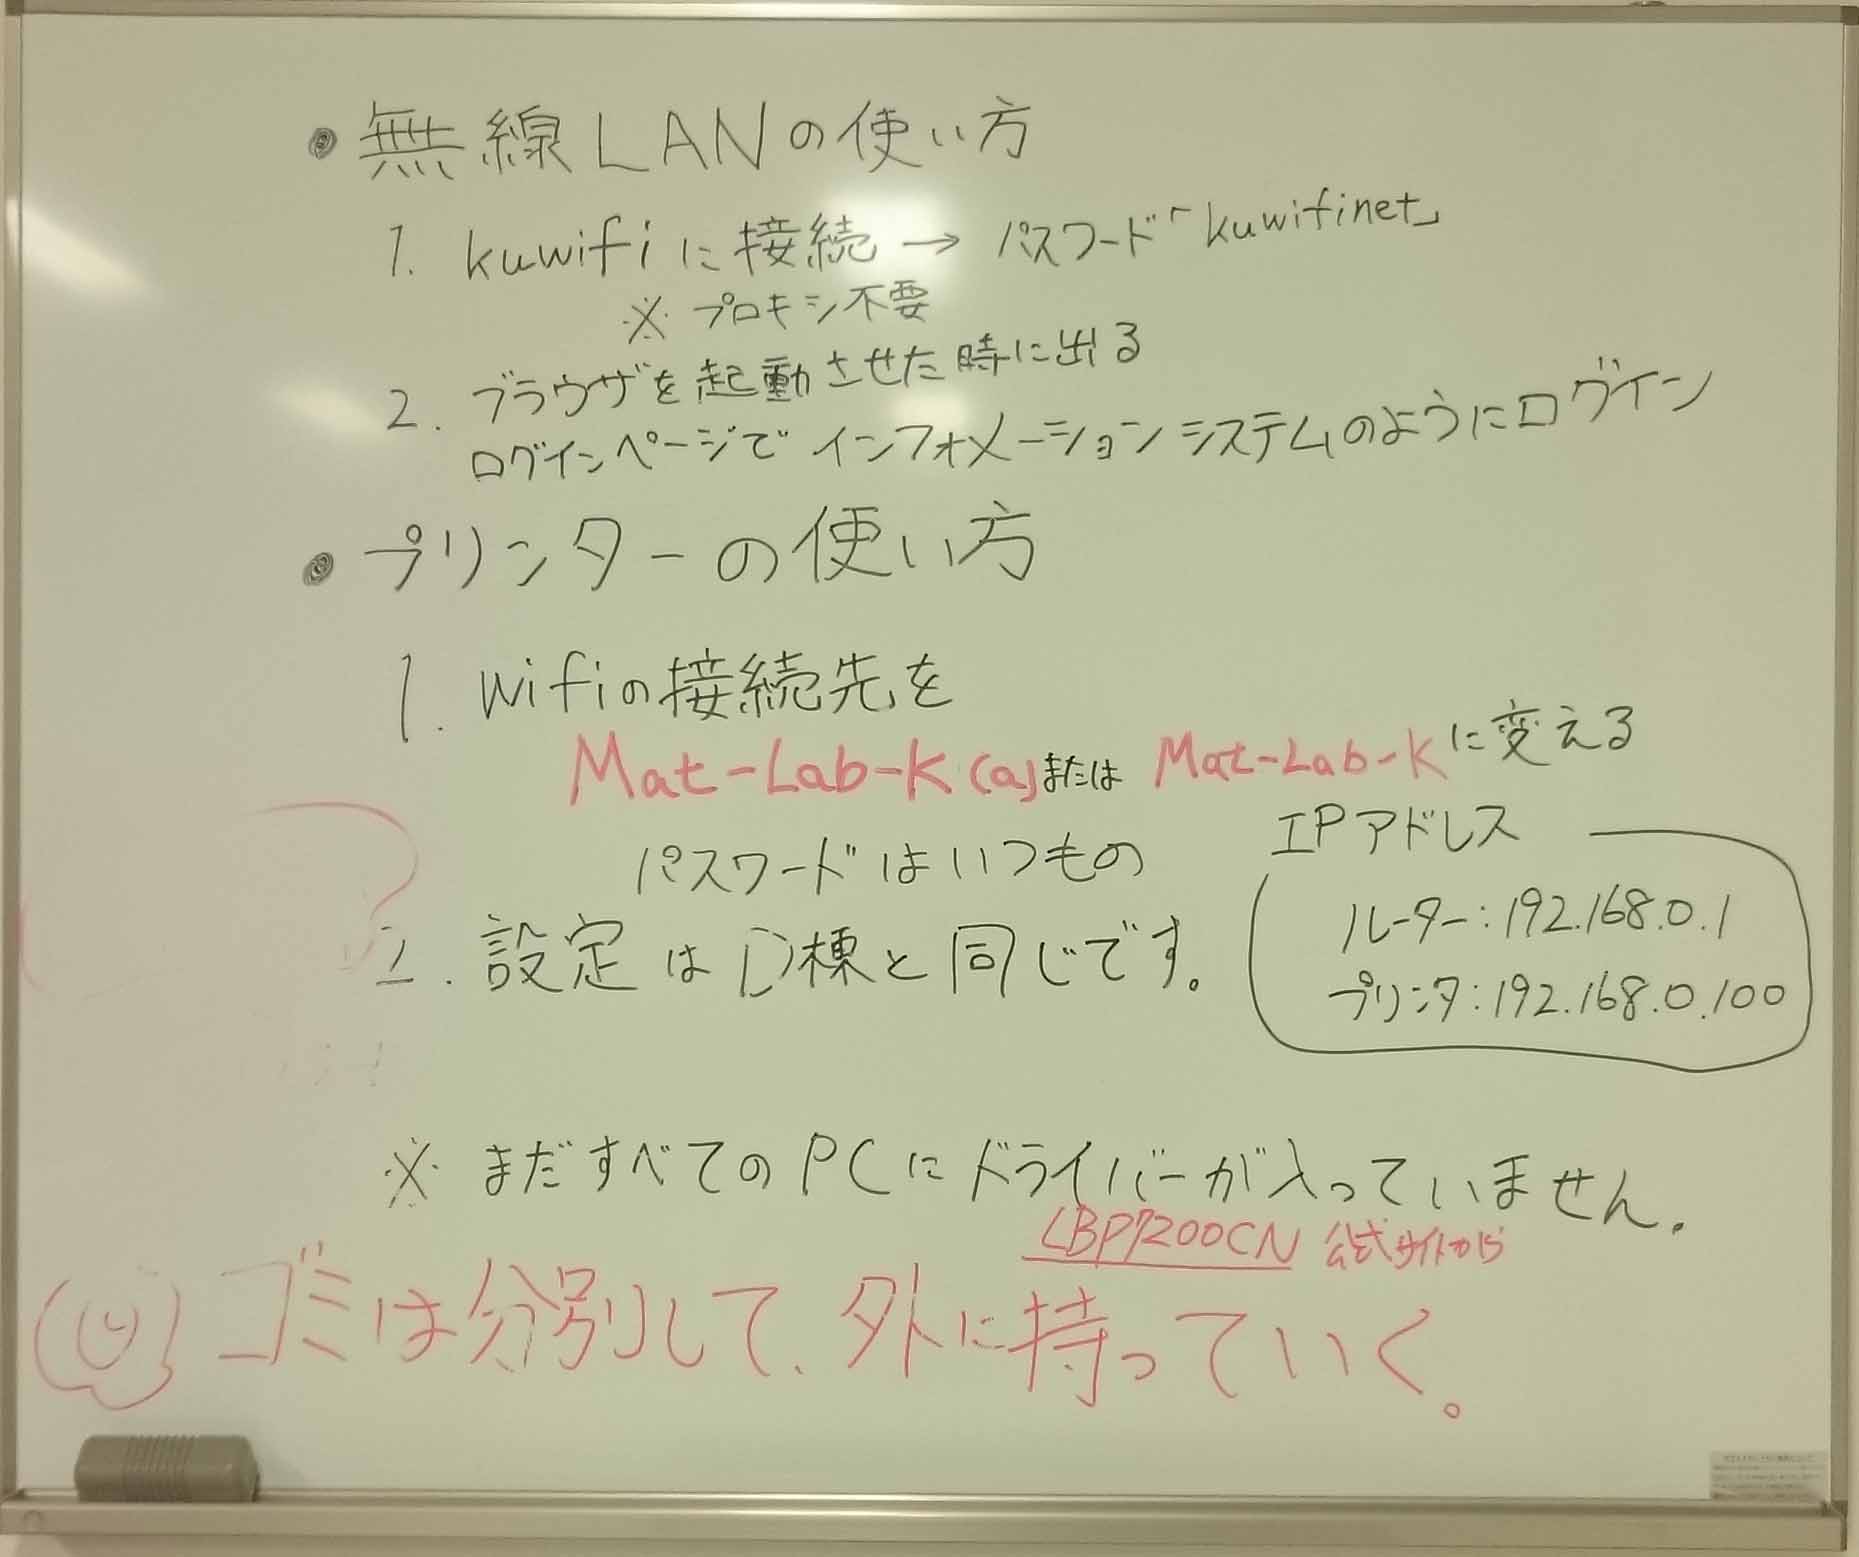 ・無線LANの使い方
1. kuwifiに接続→パスワード「kuwifinet」
※プロキシ不要
2. ブラウザを起動させた時に出る
ログインページでインフォメーションシステムのようにログイン
・プリンターの使い方
1. wifiの接続先を
Mat-Lab-K(a)または Mat-Lab-Kに変える
パスワードはいつもの
2. 設定はD棟と同じです。
IPアドレス
ルーター:192.168.0.1
プリンタ:192.168.0.100
※まだすべてのPCにドライバーが入っていません.
LBP7200CN 公式サイトから
ゴミは分別して、外に持っていく。